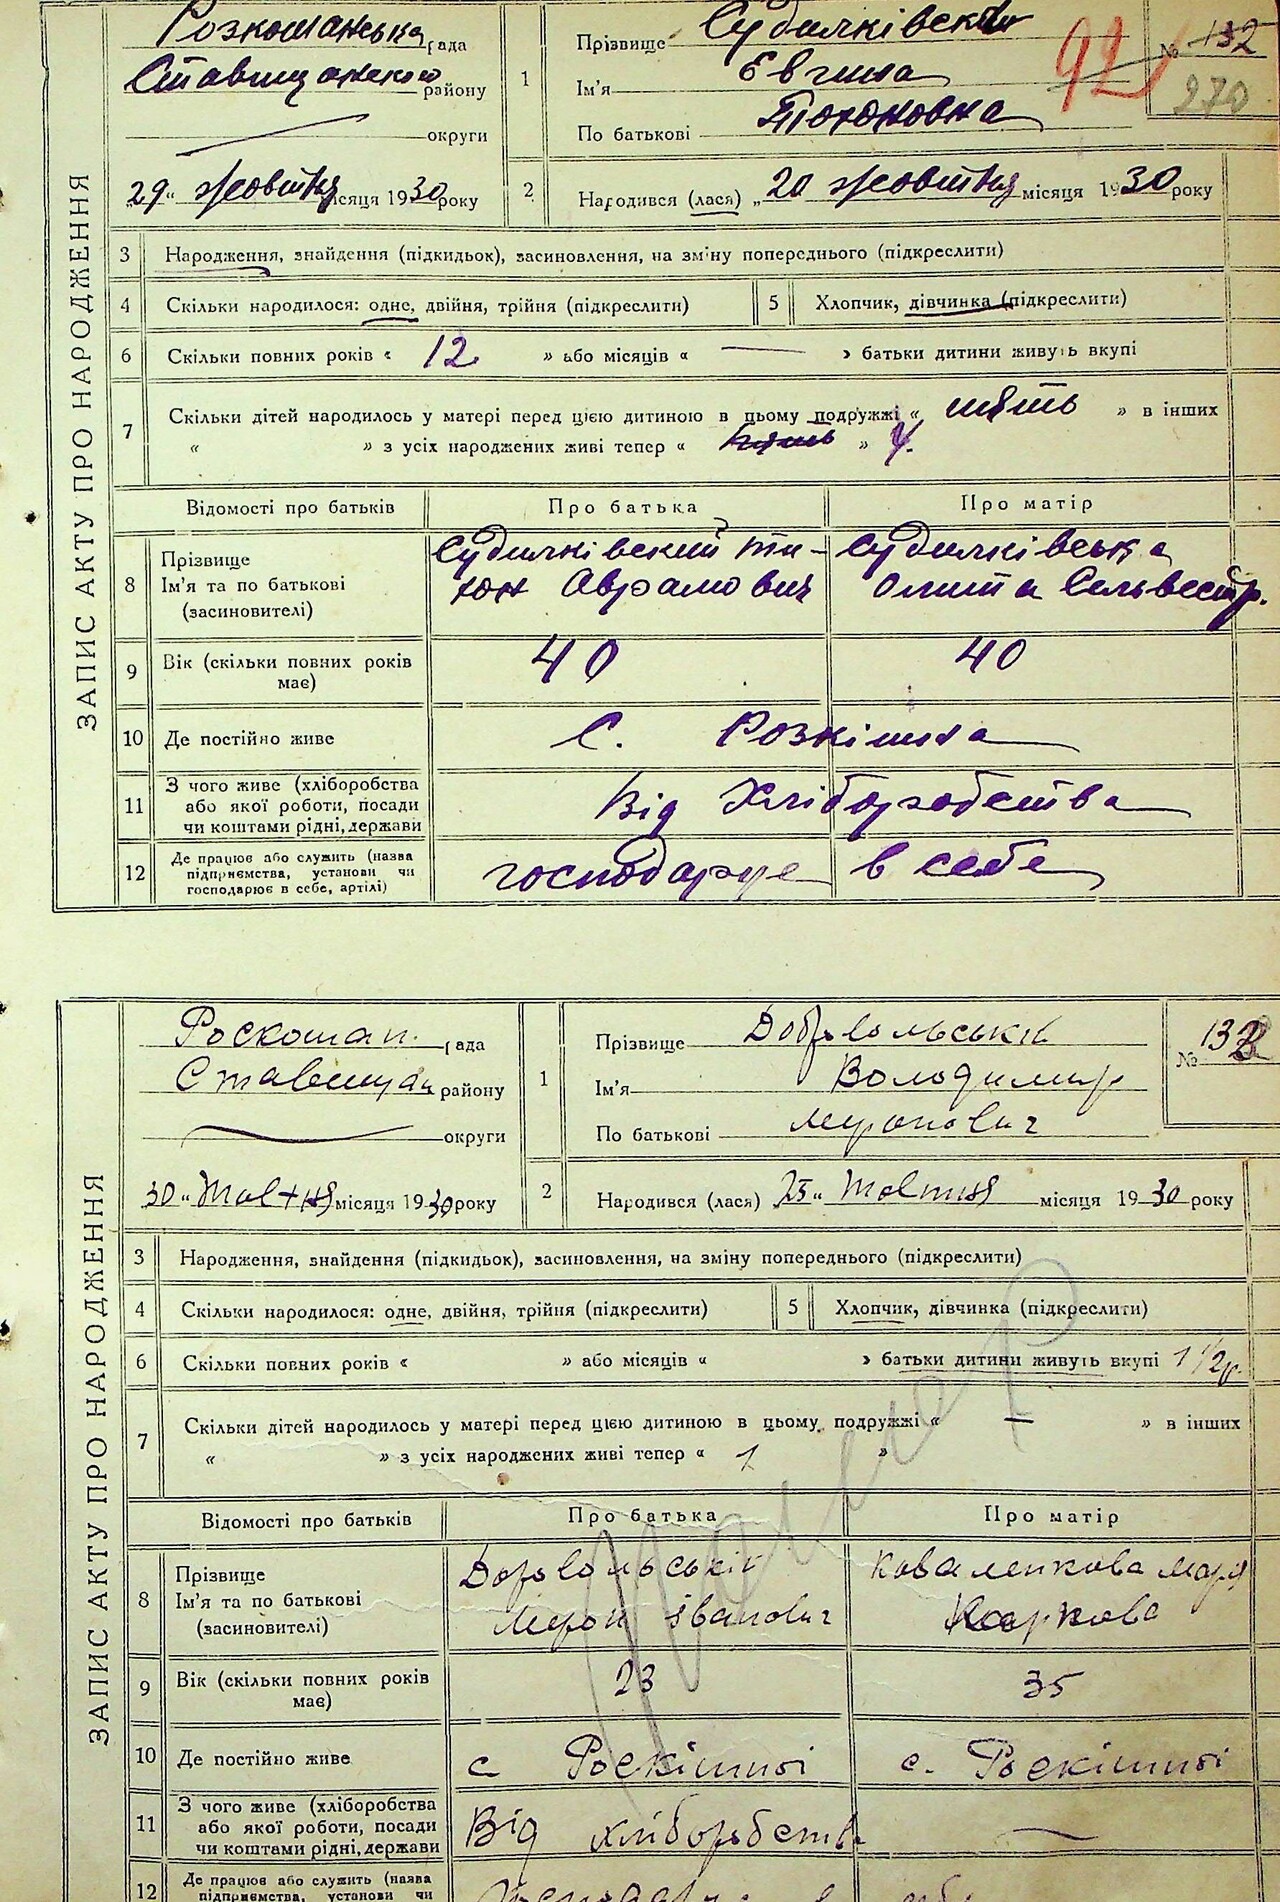 Розкошанська рада
Ставищанського району
округи
„29“ жовтня місяця 1930 року
1
Прізвище Судилківська
Ім'я Евгина
По батькові Тохоновна
92
№ 132
270
2
Народився (лася) „20 жовтня місяця 1930 року
ЗАПИС АКТУ ПРО НАРОДЖЕННЯ
3 Народження, знайдення (підкидьок), засиновлення, на зміну попереднього (підкреслити)
4 Скільки народилося: одне, двійня, трійня (підкреслити) 5 Хлопчик, дівчинка (підкреслити)
6 Скільки повних років « 12 » або місяців « — » батьки дитини живуть вкупі
7 Скільки дітей народилось у матері перед цією дитиною в цьому подружжі « пять » в інших
« » з усіх народжених живі тепер « » 4.
Відомості про батьків Про батька Про матір
8 Прізвище
Ім'я та по батькові
(засиновителі)
Судилківский Ти-
хон Аврамович
Судилківська
Олита Сельвестр.
9 Вік (скільки повних років
має)
40 40
10 Де постійно живе С. Розкішна
11 З чого живе (хліборобства
або якої роботи, посади
чи коштами рідні, держави
Від Хліборобства
12 Де працює або служить (назва
підприємства, установи чи
господарює в себе, артілі)
господарує в себе
Роскошан. рада
Ставищан району
округи
30 „ Жовтня місяця 1930 року
1
Прізвище Добровольській
Ім'я Володимир
По батькові Миронович
№ 132
2
Народився (лася) 25 „ Жовтня місяця 1930 року
ЗАПИС АКТУ ПРО НАРОДЖЕННЯ
3 Народження, знайдення (підкидьок), засиновлення, на зміну попереднього (підкреслити)
4 Скільки народилося: одне, двійня, трійня (підкреслити) 5 Хлопчик, дівчинка (підкреслити)
6 Скільки повних років « » або місяців « » батьки дитини живуть вкупі 1 1/2 р.
7 Скільки дітей народилось у матері перед цією дитиною в цьому подружжі « — » в інших
« » з усіх народжених живі тепер « 1 »
Відомості про батьків Про батька Про матір
8 Прізвище
Ім'я та по батькові
(засиновителі)
Доровольській
Мирон Іванович
Коваленкова Марія
Каркова
9 Вік (скільки повних років
має)
23 35
10 Де постійно живе с Роскішної с. Роскішної
11 З чого живе (хліборобства
або якої роботи, посади
чи коштами рідні, держави
Від хліборобства —
12 Де працює або служить (назва
підприємства, установи чи